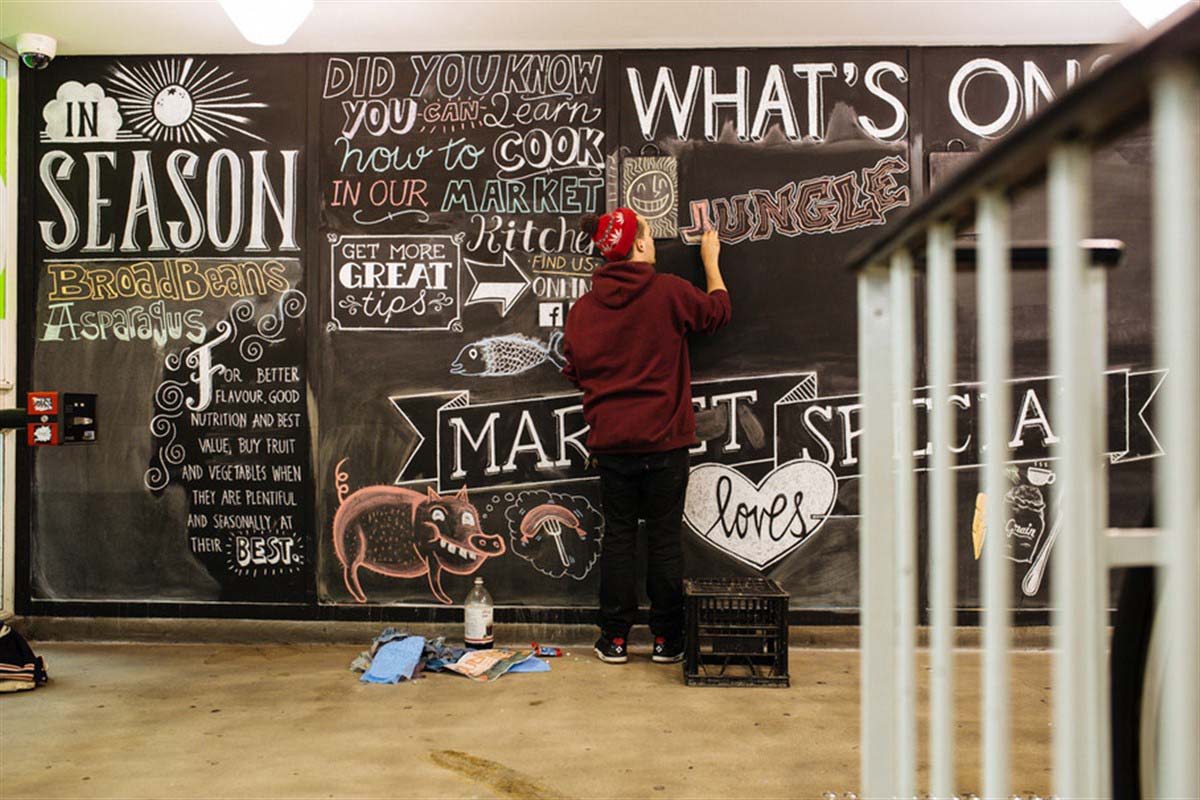 IN
SEASON
BROADBEANS
ASPARAGUS
FOR BETTER
FLAVOUR, GOOD
NUTRITION AND BEST
VALUE, BUY FRUIT
AND VEGETABLES WHEN
THEY ARE PLENTIFUL
AND SEASONALLY AT
THEIR BEST.
DID YOU KNOW
YOU CAN Learn
how to COOK
IN OUR MARKET
Kitchen
FIND US
ONLINE
f
GET MORE
GREAT
tips
WHAT'S ON
JUNGLE
MARKET SPECIAL
loves
Grain